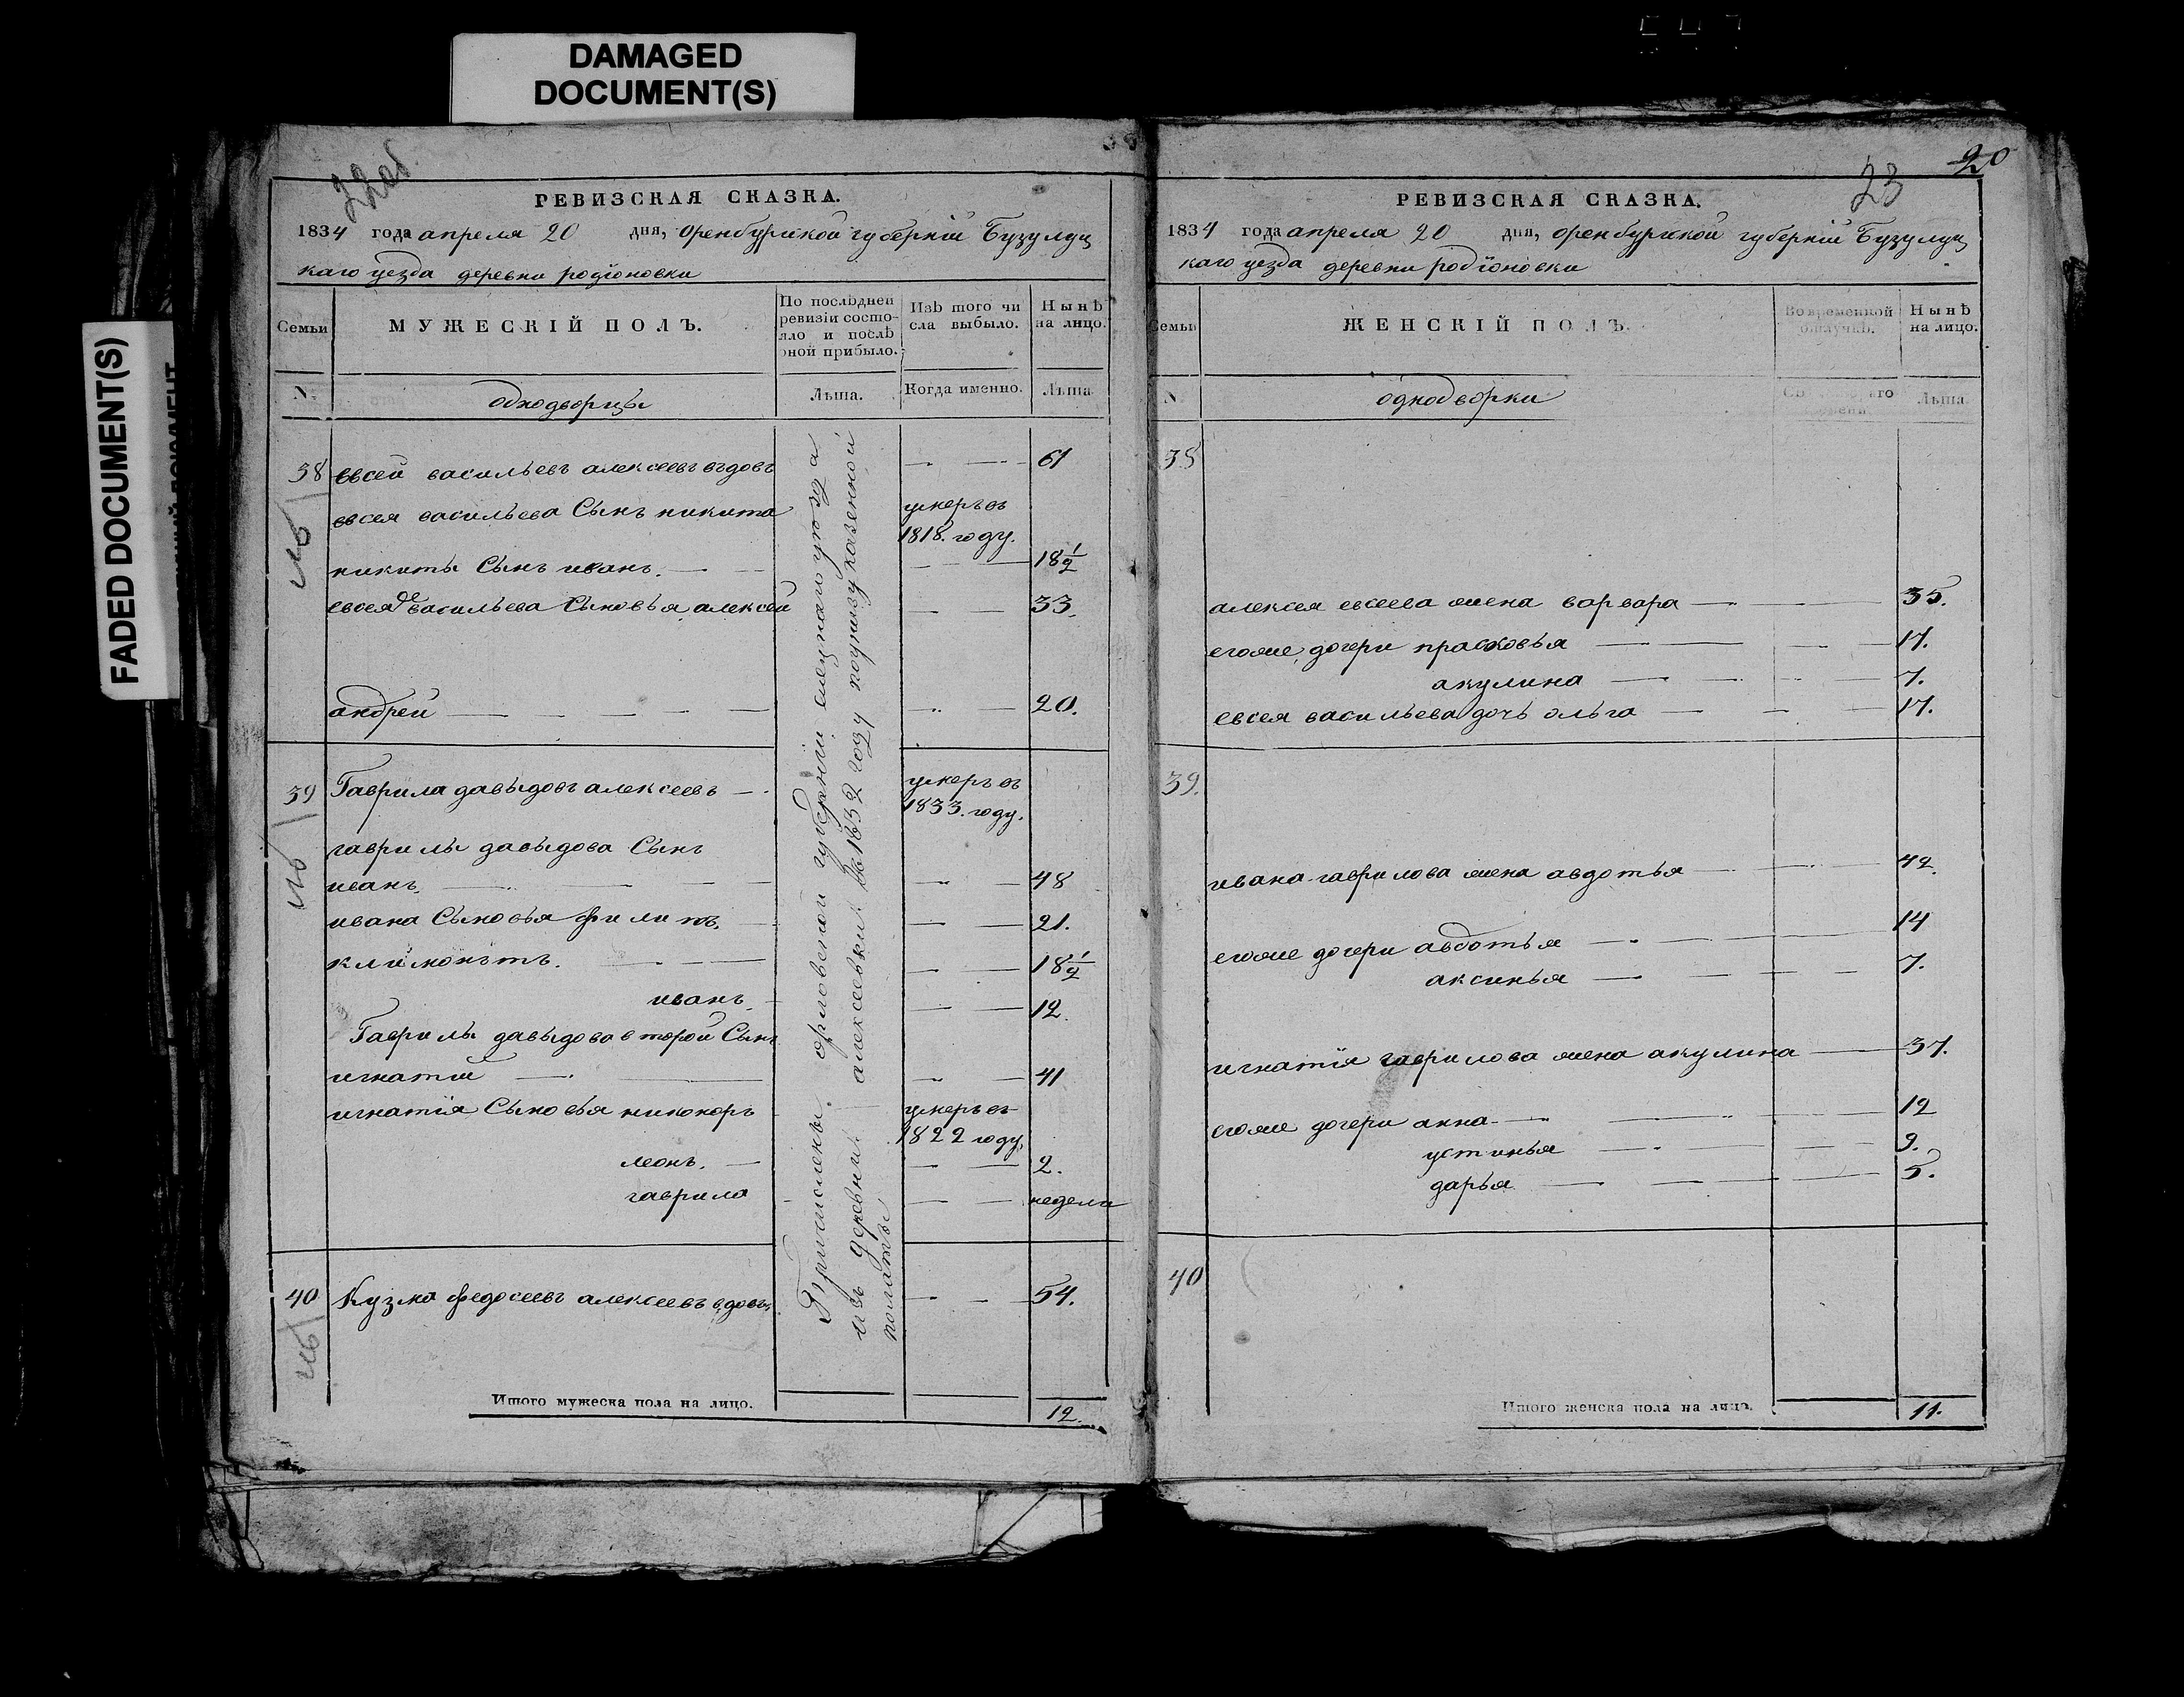 DAMAGED
DOCUMENT(S)
FADED DOCUMENT(S)
22об
РЕВИЗСКАЯ СКАЗКА.
1834 года апреля 20 дня, оренбургской губернїи Бузулуц
каго уезда деревни родїоновки
Семьи
МУЖЕСКІЙ ПОЛЪ.
По послѣдней
ревизіи состо-
яло и послѣ
оной прибыло.
Изъ того чи
сла выбыло.
Нынѣ
на лицо.
однодворцы
Лѣта.
Когда именно.
Лѣта
Причислены орловской губернїи елецкаго уезда
изъ деревни алексеевки въ 1832 году по указу казенной
полаты
38 евсей васильевъ алексеевъ вдовъ 61
евсея васильева Сынъ никита умеръ въ
1818. году.
никиты Сынъ иванъ. 18 1/2
евсея васильева Сыновья алексей 33.
андрей 20.
39 Гаврила давыдовъ алексеевъ умеръ въ
1833. году.
гаврилы давыдова Сынъ
иванъ. 48
ивана Сыновья филипъ. 21.
климонътъ. 18 1/2
иванъ 12.
Гаврилы давыдова второй Сынъ
игнатий 41
игнатїя Сыновья никоноръ умеръ въ
1822 году
леонъ. 2.
гаврила недели
40 Кузма федосеевъ алексеевъ вдовъ 54.
Итого мужеска пола на лицо. 12.
20
23
РЕВИЗСКАЯ СКАЗКА.
1834 года апреля 20 дня, оренбургской губернїи Бузулуц
каго уезда деревни родїоновки
Семьи
ЖЕНСКІЙ ПОЛЪ.
Во временной
отлучкѣ.
Нынѣ
на лицо.
однодворки
Лѣта.
38
алексея евсеева жена варвара 35.
егоже дочери прасковья 17.
акулина 7.
евсея васильева дочь ольга 17.
39.
ивана гаврилова жена авдотья 42.
егоже дочери авдотья 14
аксинья 7.
игнатїя гаврилова жена акулина 37.
егоже дочери анна 12
устинья 9.
дарья 5.
40
Итого женска пола на лицо. 11.